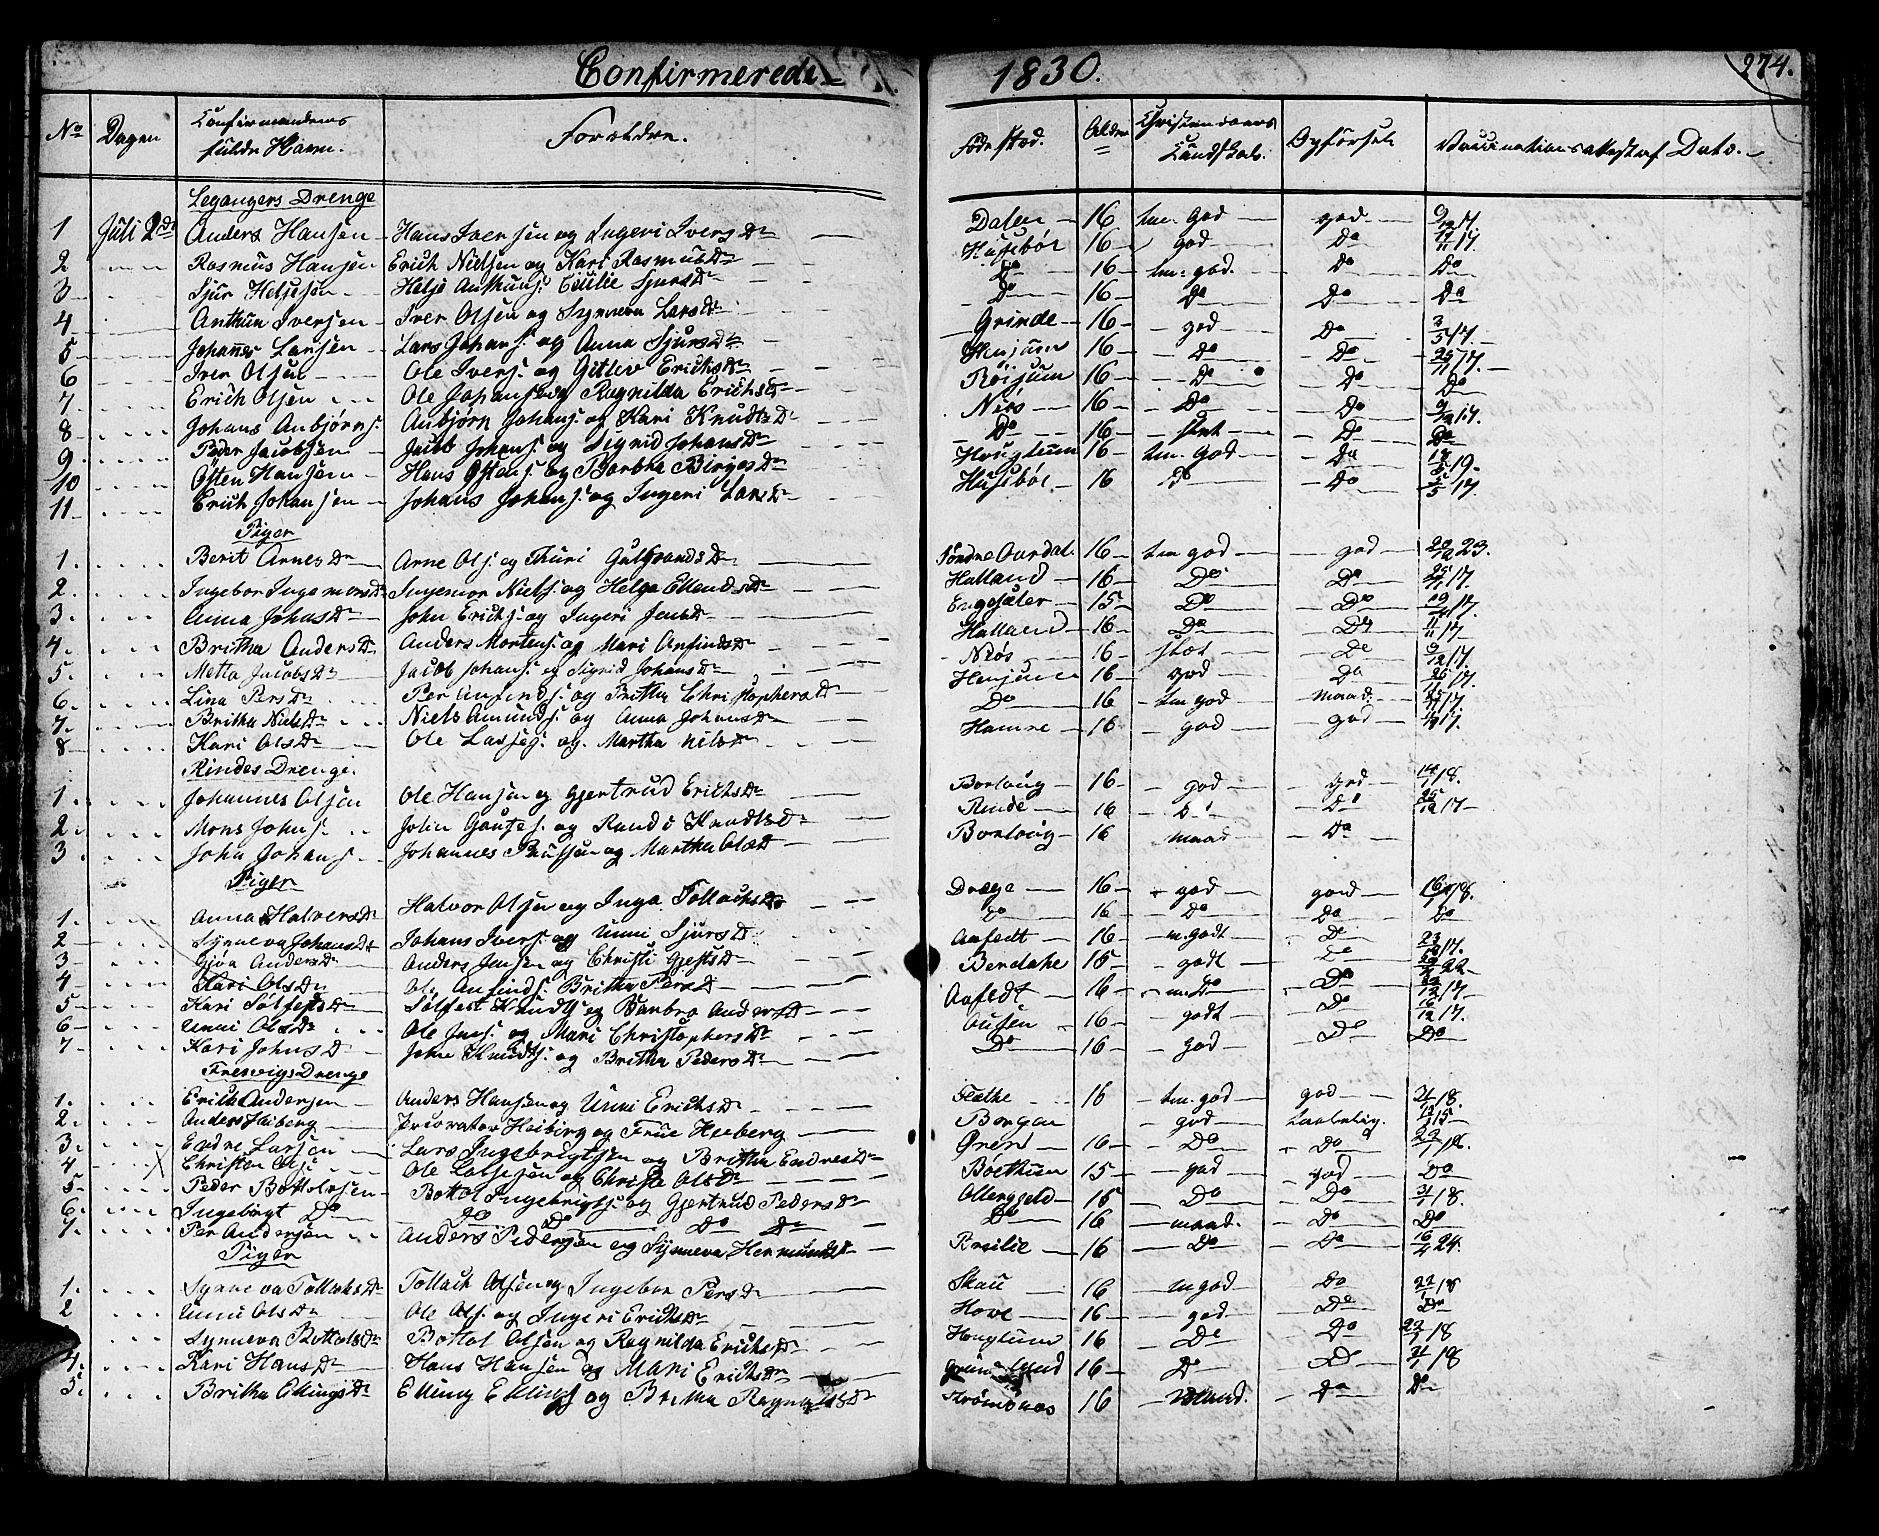 Confirmerede 1830. 274.
No Dagen Confirmandens fulde Navn. Forældre. Fødested. Alder Christendoms Kundskab. Opførsel Vaccinations attest af Dato.
Legangers Drenge
1 Juli 2 Anders Hansen Hans Iversen og Ingeri Ivers Dr Dalen 16 tem. god god 9/12 17
2 Rasmus Hansen Erich Nielsen og Kari Rasmus Dr Husebøe 16 god Do 17.
3 Sjur Heljesen Helje Anthuns. Cicilie Sjurs Dr Do 16 tem. god. Do Do
4 Anthun Iversen Iver Olsen og Synneva Lars Dr Do 16 Do Do Do
5 Johannes Larsen Lars Johans. og Anna Sjurs Dr Grinde 16 god Do 17.
6 Iver Olsen Ole Ivers. og Gitlev Erichs Dr Henjum 16 Do Do 17.
7 Erich Olsen Ole Johans. og Ragnilda Erichs Dr Røisum 16 Do Do Do
8 Johans Anbjørns. Anbjørn Johans. og Kari Knudts Dr Niøs 16 Do Do 9/12 17.
9. Peder Jacobsen Jacob Johans. og Sigrid Johans Dr Do 16 slet Do Do
10 Østen Hansen Hans Østens. og Barbha Birges Dr Houglum 16 tem. god Do 19
11 Erich Johansen Johans Johans. og Ingeri Lars Dr Husebøe 16 Do Do 17.
Piger
1. Berit Arnes Dr Arne Ols. og Thuri Gulbrands Dr Søndre Ourdal. 16 tem god god 23.
2. Ingebor Ingemors Dr Ingemor Niels. og Helga Ellends Dr Halland 16 Do Do 17.
3. Anna Johns Dr John Erichs. og Ingeri Jens Dr Engesæter 15 Do Do 17.
4. Britha Anders Dr Anders Mortens. og Mari Anfinds Dr Halland 16 Do Do 17
5. Metta Jacobs Dr Jacob Johans. og Sigrid Johans Dr Niøs 16 slet Do 9/12 17.
6. Lina Pers Dr Per Anfinds. og Britha Christophers Dr Henjum 16 god Do 17.
7. Britha Niels Dr Niels Amunds. og Anna Johans Dr Do 16 tem god maad. 17.
8 Kari Ols Dr Ole Lasses. og Martha Nils Dr Hamre 16 god god 17.
Rindes Drenge.
1. Johannes Olsen Ole Hansen og Gjertrud Erichs Dr Borloug 16 god god 18.
2. Mons Johns. John Goutes. og Randi Knudts Dr Rinde 16 Do Do 17
3. John Johans. Johannes og Martha Ols Dr Borloug 16 maad Do
Piger
1. Anna Halvors Dr Halvor Olsen og Inga Tollachs Dr Drægs 16 god god 18.
2 Synneva Johans Dr Johans Ivers. og Unni Sjurs Dr Do 16 Do Do Do
3 Anders Dr Anders Jensen og Christi Gjests Dr Aafedt 16 m. godt Do 17.
4 Kari Ols Dr Ole Anfinds. Britha Pers Dr Bendahe 15 godt Do 22
5 Kari Sølfests Dr Sølfest Knudts. og Barbro Anders Dr Aafedt 16 m. Do Do 17
6 Unni Ols Dr Ole Jens. og Mari Christophers Dr Ousen 16 godt Do 17.
7 Kari Johns Dr John Knudts. og Britha Peders Dr Do 16 god Do Do
Fresvigs Drenge
1. Erich Andersen Anders Hansen og Unni Erichs Dr Fæthe 16 tem. god god 18.
2. Anders Heiberg Procurator Heiberg og Frue Heiberg Bergen god 15
3. Endre Larsen Lars Ingebrigtsen og Britha Endres Dr 16 Do Do 18.
4 Christen Ols. Ole Lassesen og Christi Ols Dr Boethun 15 god god Do
5. Peder Bottolvsen Bottol Ingebrigts. og Gjertrud Peders Dr 15 Do Do 18.
6. Ingebrigt Do Do Do Do Do Do 16 maad. Do Do
7. Per Andersen Anders Pedersen og Synneva Hermunds Dr 16 Do Do 24.
Piger
1. Synneva Tollachs Dr Tollach Olsen og Ingebor Pers Dr Skau 16 m god Do 18
2 Unni Ols Dr Ole Ols. og Ingeri Erichs Dr Hove 16 god Do Do
Synneva Bottols Dr Bottol Olsen og Ragnilda Erichs Dr Houglum 16 Do Do 18
4. Kari Hans Dr Hans Hansen og Mari Erichs Dr 16 Do Do 18
5. Britha Ellings Dr Elling Ellings. og Britha Ragnvalds Dr Strømsnæs 16 maad. Do Do